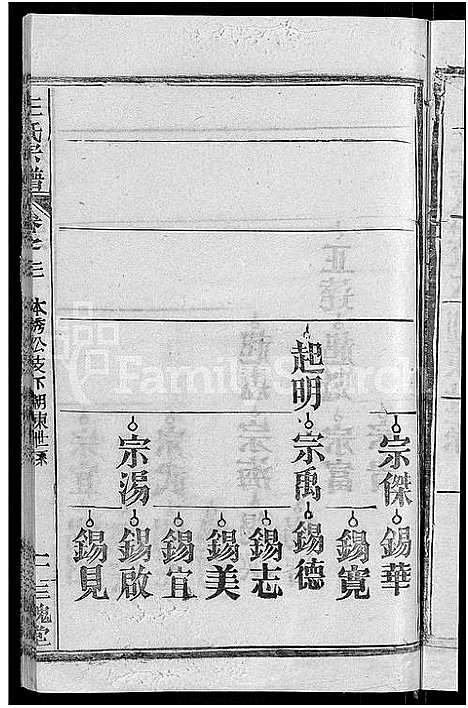 王氏宗譜
卷之三
本秀公支下朝東世系
三槐堂
起明
宗傑
宗禹
宗湯
錫華
錫寬
錫德
錫志
錫美
錫宜
錫啟
錫見
FamilySearch